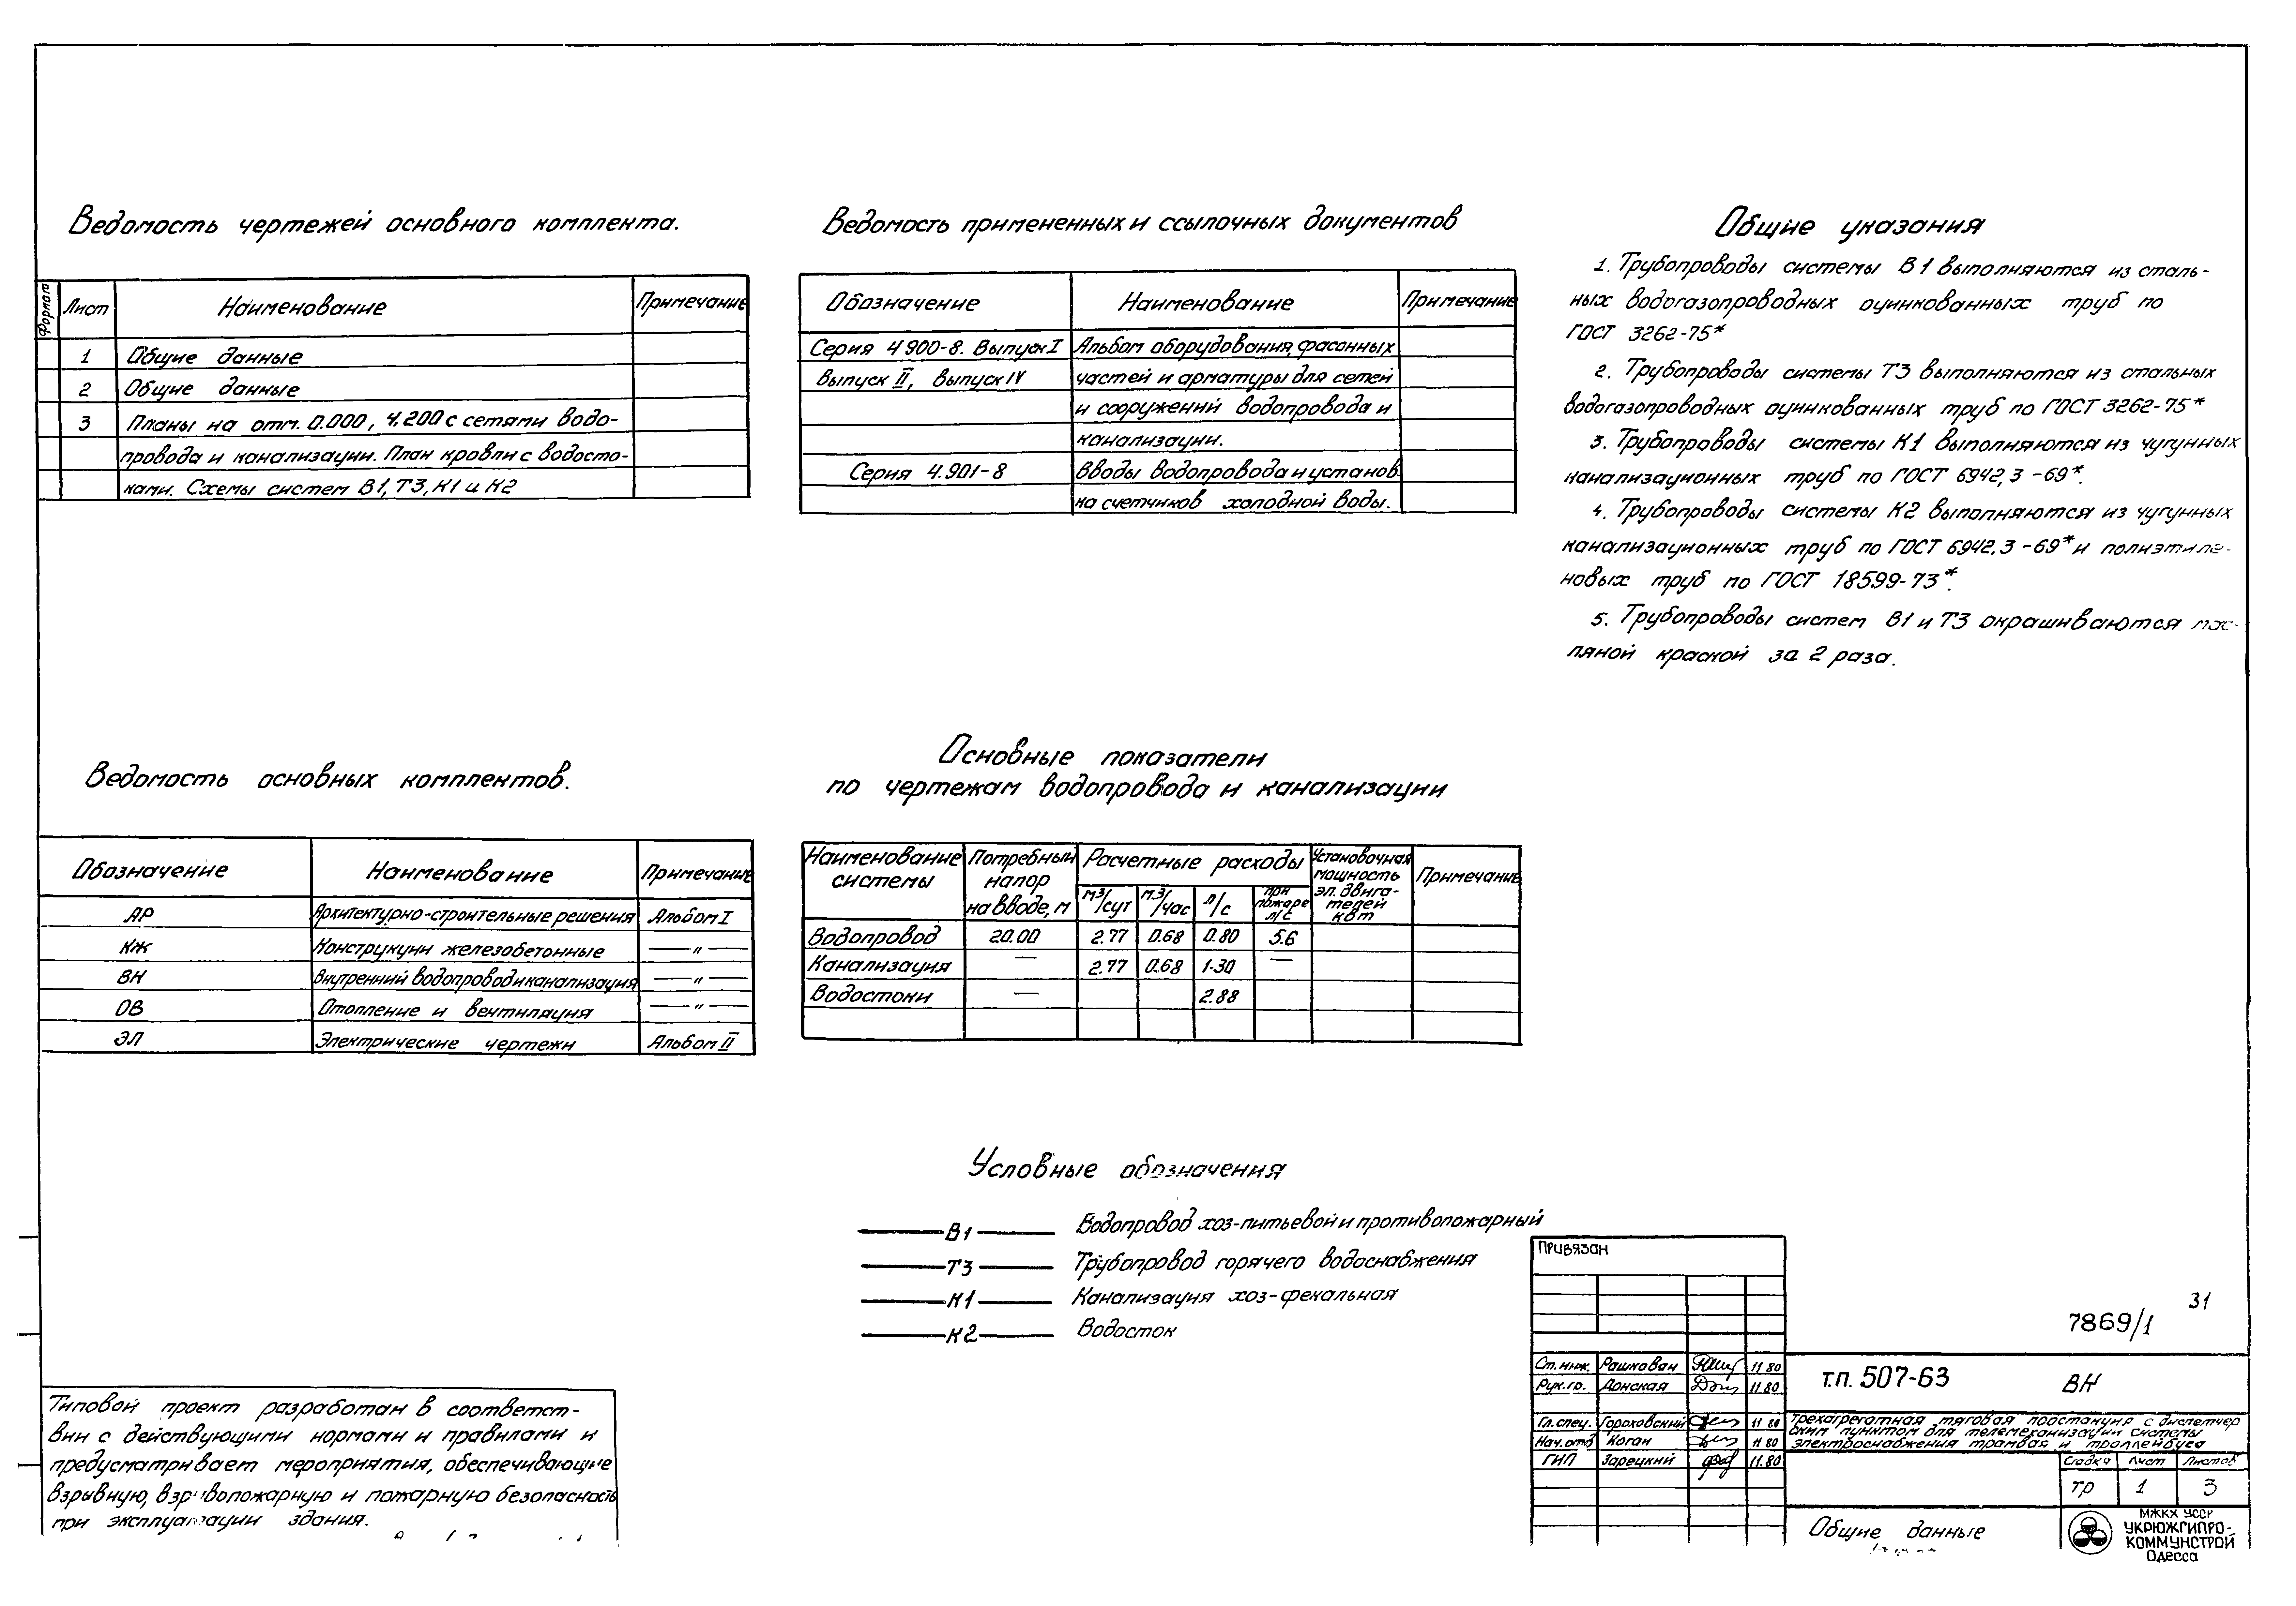 Ведомость чертежей основного комплекта.
Формат Лист Наименование Примечание
1 Общие данные
2 Общие данные
3 Планы на отм. 0.000, 4.200 с сетями водо-
провода и канализации. План кровли с водосто-
ками. Схемы систем В1, Т3, К1 и К2
Ведомость примененных и ссылочных документов
Обозначение Наименование Примечание
Серия 4 900-8. Выпуск I Альбом оборудования, фасонных
Выпуск II, выпуск IV частей и арматуры для сетей
и сооружений водопровода и
канализации.
Серия 4.901-8 Вводы водопровода и установ-
ка счетчиков холодной воды.
Общие указания
1. Трубопроводы системы В1 выполняются из сталь-
ных водогазопроводных оцинкованных труб по
ГОСТ 3262-75*
2. Трубопроводы системы Т3 выполняются из стальных
водогазопроводных оцинкованных труб по ГОСТ 3262-75*
3. Трубопроводы системы К1 выполняются из чугунных
канализационных труб по ГОСТ 6942,3-69*.
4. Трубопроводы системы К2 выполняются из чугунных
канализационных труб по ГОСТ 6942.3-69* и полиэтиле-
новых труб по ГОСТ 18599-73*.
5. Трубопроводы систем В1 и Т3 окрашиваются мас-
ляной краской за 2 раза.
Ведомость основных комплектов.
Обозначение Наименование Примечание
АР Архитектурно-строительные решения Альбом I
КЖ Конструкции железобетонные — " —
ВК Внутренний водопровод и канализация — " —
ОВ Отопление и вентиляция — " —
ЭЛ Электрические чертежи Альбом II
Основные показатели
по чертежам водопровода и канализации
Наименование системы Потребный напор на вводе, м Расчетные расходы Установочная мощность эл. двига-телей квт Примечание
м³/сут м³/час л/с при пожаре л/с
Водопровод 20.00 2.77 0.68 0.80 5.6
Канализация — 2.77 0.68 1.30 —
Водостоки — 2.88
Условные обозначения
В1 Водопровод хоз-питьевой и противопожарный
Т3 Трубопровод горячего водоснабжения
К1 Канализация хоз-фекальная
К2 Водосток
Типовой проект разработан в соответст-
вии с действующими нормами и правилами и
предусматривает мероприятия, обеспечивающие
взрывную, взрывопожарную и пожарную безопасность
при эксплуатации здания.
Привязан
31
7869/1
Ст. инж. Рашкован 11 80
Рук. гр. Донская 11 80
Гл. спец. Гороховский 11 80
Нач. отд Коган 11 80
ГИП Зарецкий 11.80
т.п. 507-63 ВК
Трехагрегатная тяговая подстанция с диспетчер
ским пунктом для телемеханизации системы
электроснабжения трамвая и троллейбуса
Стадия Лист Листов
ТР 1 3
Общие данные
МЖКХ УССР
УКРЮЖГИПРО-
КОММУНСТРОЙ
Одесса